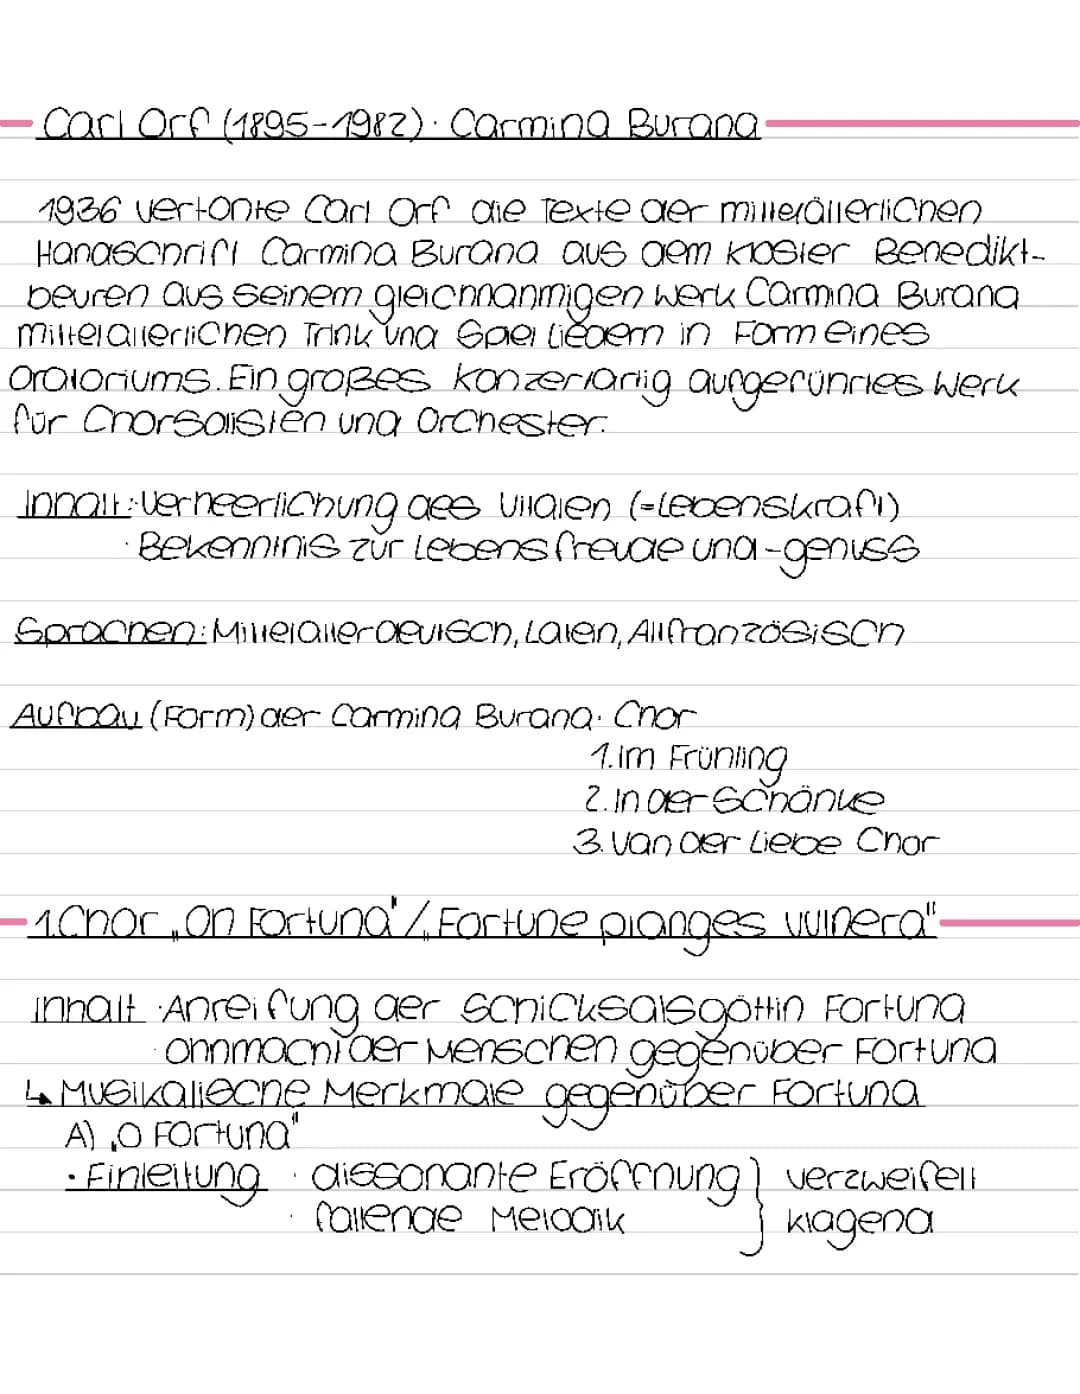 Carl Orf (1895-1982): Carmina Burana
1936 vertonte Carl Orf die Texte der mittelälterlichen
Handschrift Carmina Burana aus dem Kloster Benedikt-
beuren aus seinem gleichnahmigen Werk Carmina Burana
mittelalterlichen Trink und Spiel liedern in Form eines
Oratoriums. Ein großes konzertartig aufgerührtes Werk
für Chorsolisten und Orchester.
Innalt: Verheerlichung des Vitalen (=Lebenskraft)
· Bekenntnis zur Lebensfreude und -genuss
Sprachen: Mittelalterdeutsch, Latein, Altfranzösisch
Aufbau (Form) der Carmina Burana: Chor
1. Im Frühling
2. In der Schänke
3. Van der Liebe Chor
1. Chor „Oh Fortuna" / „Fortune planges vulnera"
Inhalt · Anreifung der Schicksalsgöttin Fortuna
· Ohnmacht der Menschen gegenüber Fortuna
↳ Musikalische Merkmale gegenüber Fortuna
A) „O Fortuna"
· Einleitung · dissonante Eröffnung } verzweifelt
· fallende Melodik } klagend